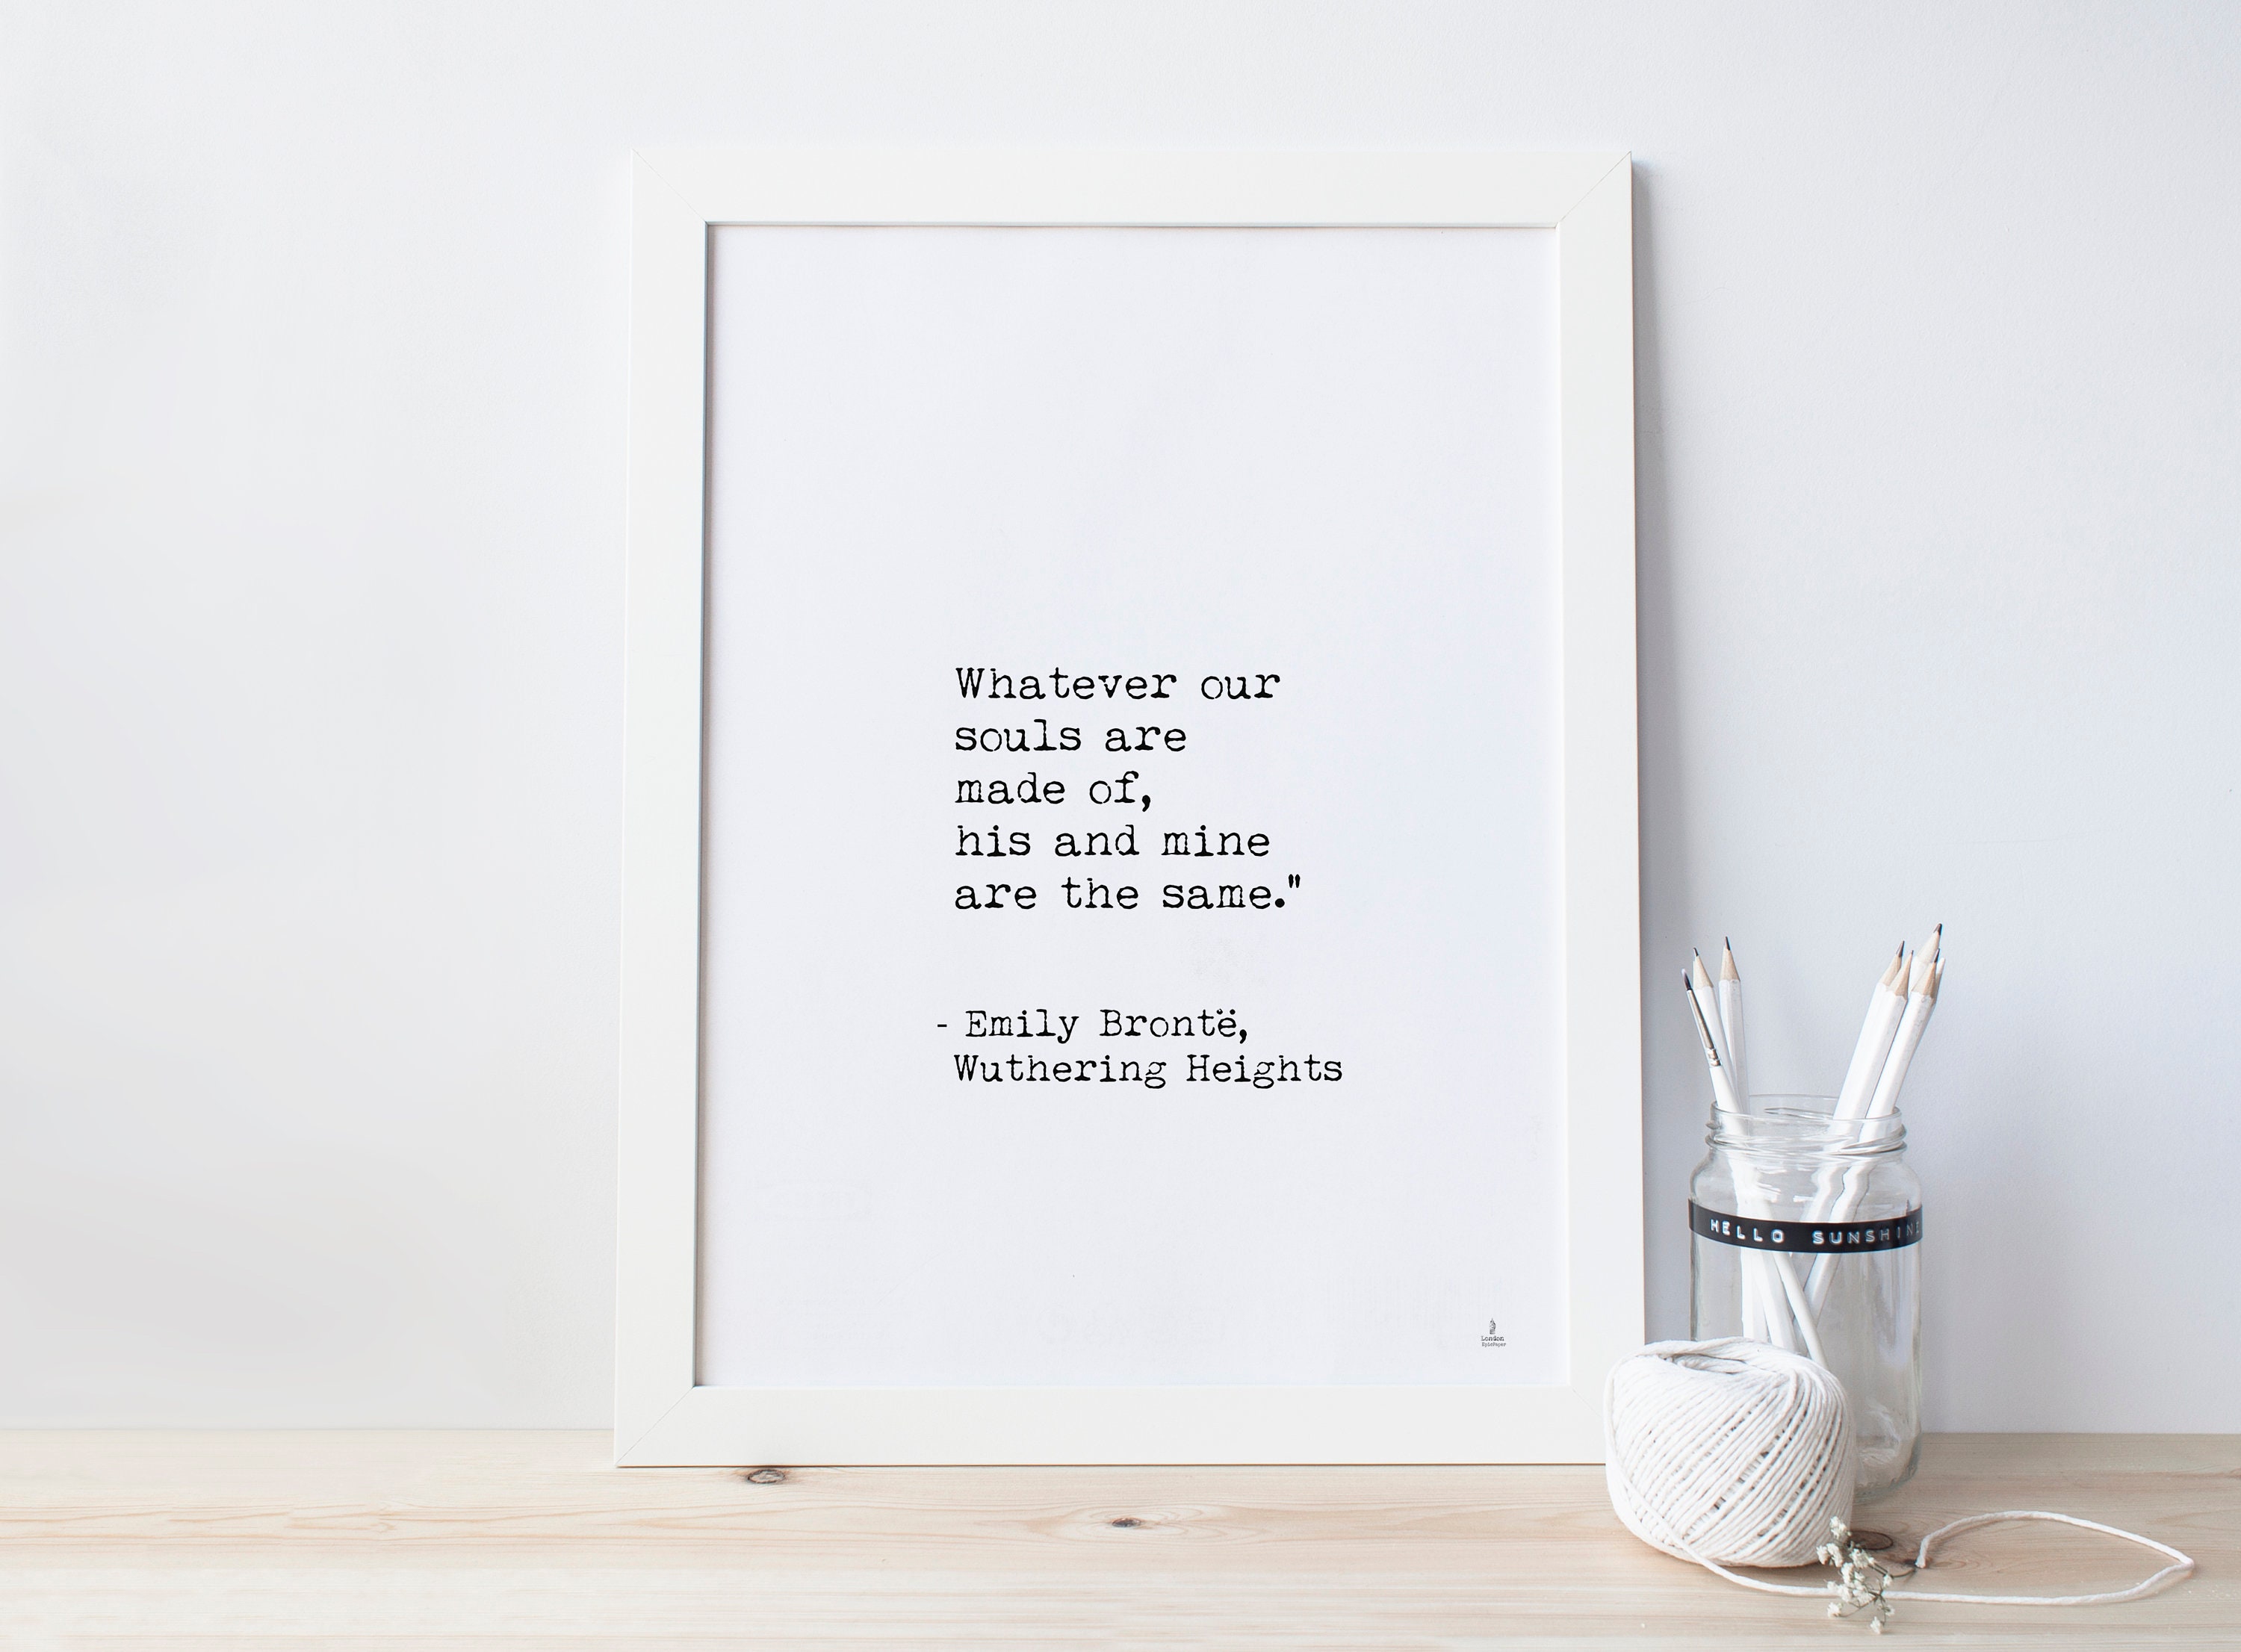 Whatever our
souls are
made of,
his and mine
are the same."
- Emily Brontë,
Wuthering Heights
HELLO SUNSHINE
London